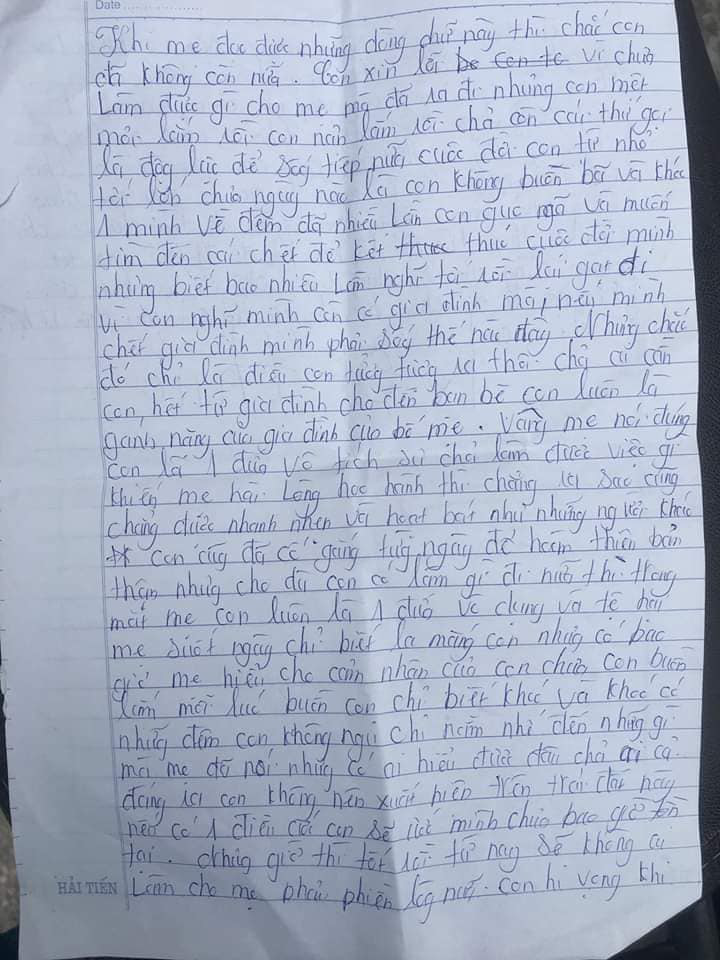 Date
Khi mẹ đọc được những dòng chữ này thì chắc con
đã không còn nữa. Con xin lỗi vì chưa
làm được gì cho mẹ mà đã ra đi nhưng con mệt
mỏi lắm rồi con nản lắm rồi chả còn cái thứ gọi
là động lực để sống tiếp nữa cuộc đời con từ nhỏ
tới lớn chưa ngày nào là con không buồn bã và khóc
1 mình về đêm đã nhiều lần con gục ngã và muốn
tìm đến cái chết để kết thúc cuộc đời mình
nhưng biết bao nhiêu lần nghĩ tới rồi lại gạt đi
vì con nghĩ mình còn có gia đình mà, nếu mình
chết gia đình mình phải sống thế nào đây. Nhưng chắc
đó chỉ là điều con tưởng tượng ra thôi chả ai cần
con, hết từ gia đình cho đến bạn bè con luôn là
gánh nặng của gia đình của bố mẹ. Vâng mẹ nói đúng
con là 1 đứa vô tích sự chả làm được việc gì
khiến mẹ hài lòng học hành thì chẳng ra sao cũng
chẳng được nhanh nhẹn và hoạt bát như những người khác
con cũng đã cố gắng từng ngày để hoàn thiện bản
thân nhưng cho dù con có làm gì đi nữa thì trong
mắt mẹ con luôn là 1 đứa vô dụng và tệ hại
mẹ suốt ngày chỉ biết la mắng con nhưng có bao
giờ mẹ hiểu cho cảm nhận của con chưa con buồn
lắm mỗi lúc buồn con chỉ biết khóc và khóc có
những đêm con không ngủ chỉ nằm nhớ đến những gì
mà mẹ đã nói nhưng có ai hiểu được đâu chả ai cả
đáng ra con không nên xuất hiện trên trái đất này
nếu có 1 điều ước con sẽ ước mình chưa bao giờ tồn
tại. Nhưng giờ thì tốt rồi từ nay sẽ không ai
HẢI TIẾN làm cho mẹ phải phiền lòng nữa. con hi vọng khi